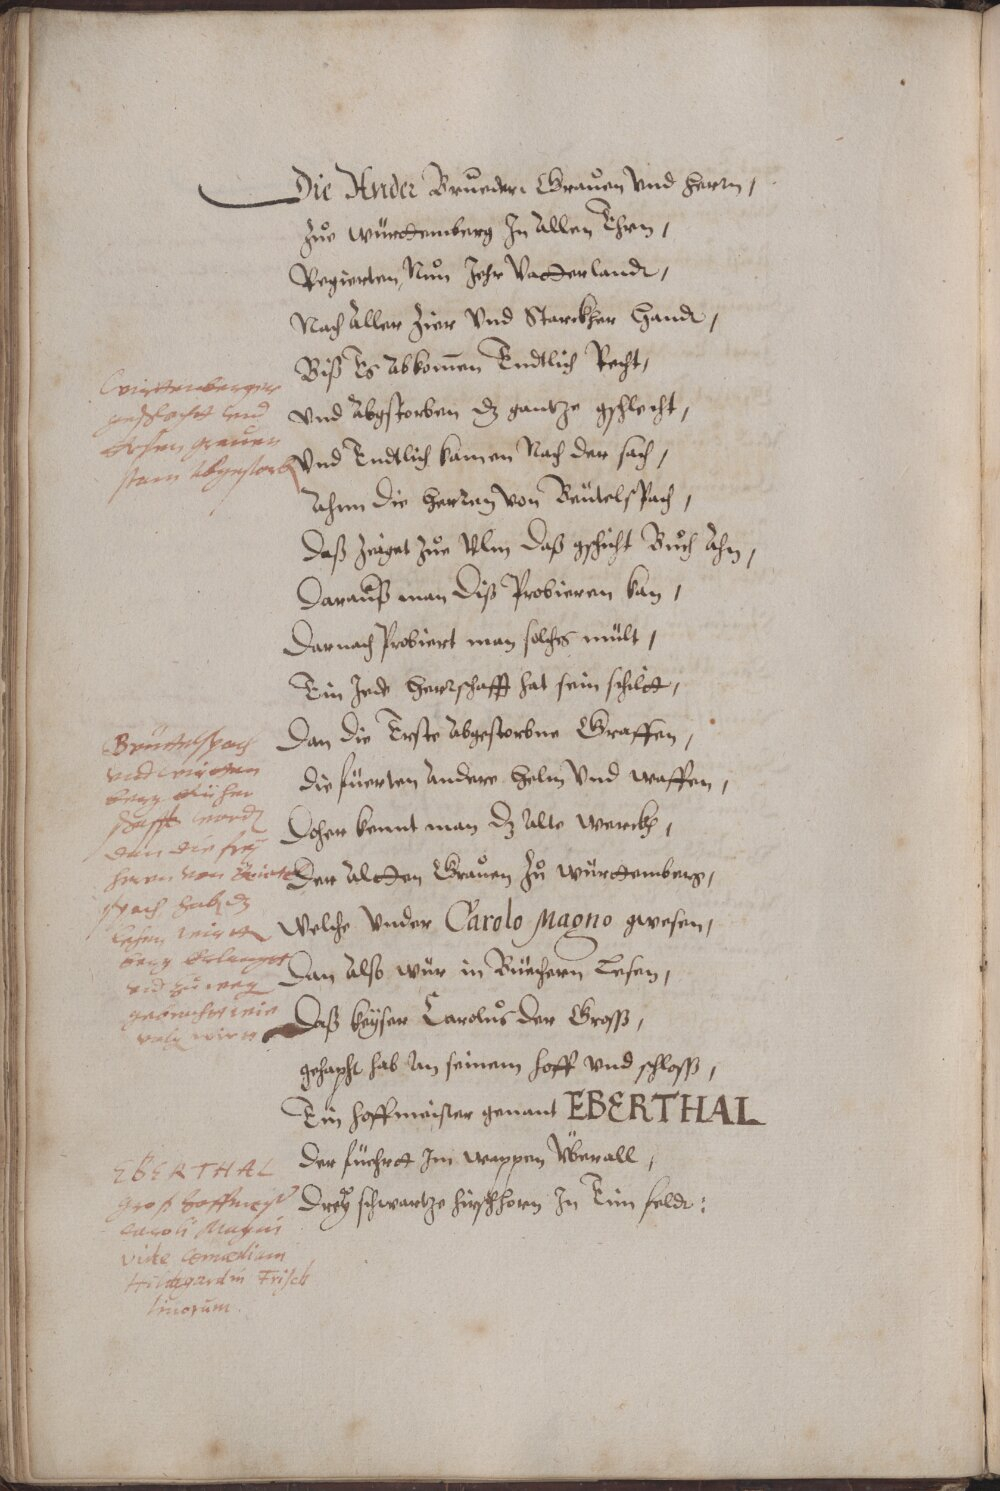 Die Ander Bruedern Grauen Vnd herrn,
Zuo Würdtemberg In Allen Ehrn,
Regierten, Nun Jehr Vatterlandt,
Nach Aller Zier Vnd Starckher Handt,
Biß Es Abkomen Endtlich Recht,
Vnd Abgstorben dz gantze gschlecht,
Vnd Endtlich kamen Nach der sach,
Ahnn die herren Von Beütelspach,
Daß Zeiget Zuo Vlm daß gschicht Buoch Ahn,
Darauß man diß Probieren kan,
Darnach Probiert man solches mült,
Ein Jede herrschafft hat sein schildt,
Dan die Erste Abgestorbne Graffen,
die fuerten Andere helm Vnd waffen,
Doher kennt man dz Alte werckh,
Der Altten Grauen Zu Würdtemberg,
Welche Vnder Carolo Magno gwesen,
Dan Also wür in Büechern Lesen,
Daß keyser Carolus der Groß,
gehapht hab An seinem hoff Vnd schloß,
Ein hoffmeister genant EBERTHAL
Der fuehrtt Im wappen Überall,
Drey schwartze hirschhorn In Eim feldt:
Wirtenberger
geschlecht Vnd
grauen
stam Abgestorb
Beüttelspach
Vnd Wirtten
berg
schafft word
dan die frey
herrn von Beüttel
spach hab dz
Lehen
berg Erlangt
vnd zuweg
gebracht wie
EBERTHAL
Groß hoffmeist
Caroli Magni
vide Comœdiam
Hildegardin Frisch
linorum.